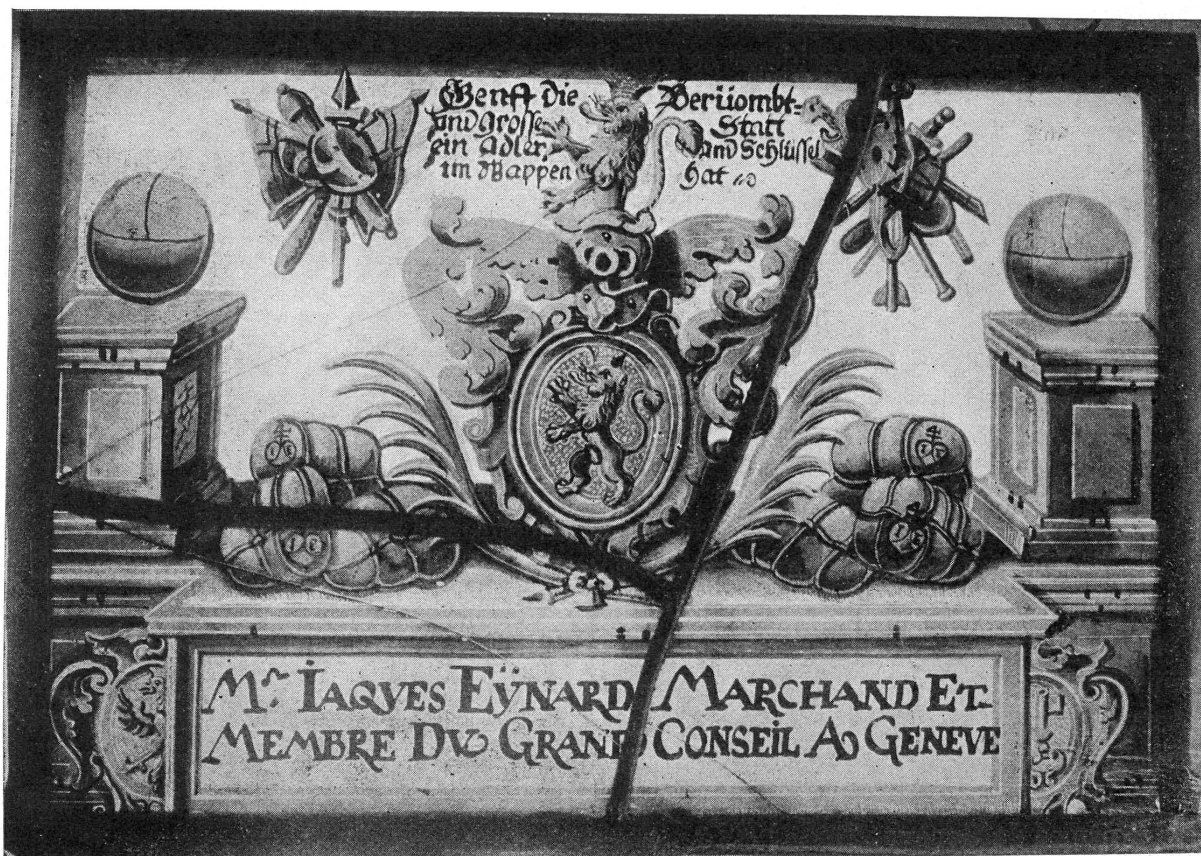 Genff die Berüombt-
und grosse Statt
ein Adler, und Schlüssel
im Wappen hat
Mr. IAQVES EŸNARD MARCHAND ET
MEMBRE DV GRAND CONSEIL A GENEVE